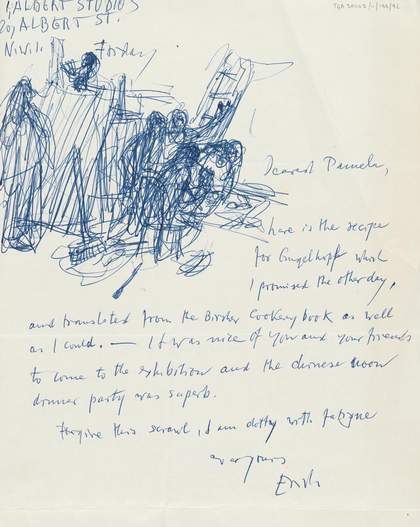 1, ALBERT STUDIOS
20, ALBERT ST.
N.W.1.
Friday
Dearest Pamela,
here is the recipe
for Gugelhupf which
I promised the other day,
and translated from the Cookery book as well
as I could. — It was nice of you and your friends
to come to the exhibition and the chinese moon
dinner party was superb.
Forgive this scrawl, I am dotty with fatigue
ever yours